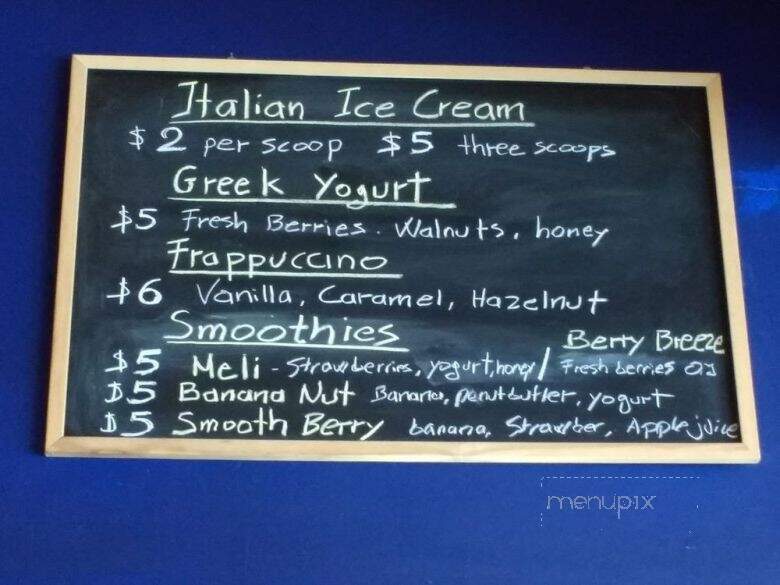 Italian Ice Cream
$2 per scoop $5 three scoops
Greek Yogurt
$5 Fresh Berries. Walnuts, honey
Frappuccino
$6 Vanilla, Caramel, Hazelnut
Smoothies
Berry Breeze
$5 Meli - Strawberries, yogurt, honey / Fresh berries OJ
$5 Banana Nut Banana, penutbutter, yogurt
$5 Smooth Berry banana, Strawber, Apple juice
menupix